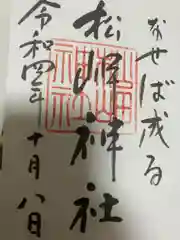 なせば成る
松岬神社
令和四年 十月八日